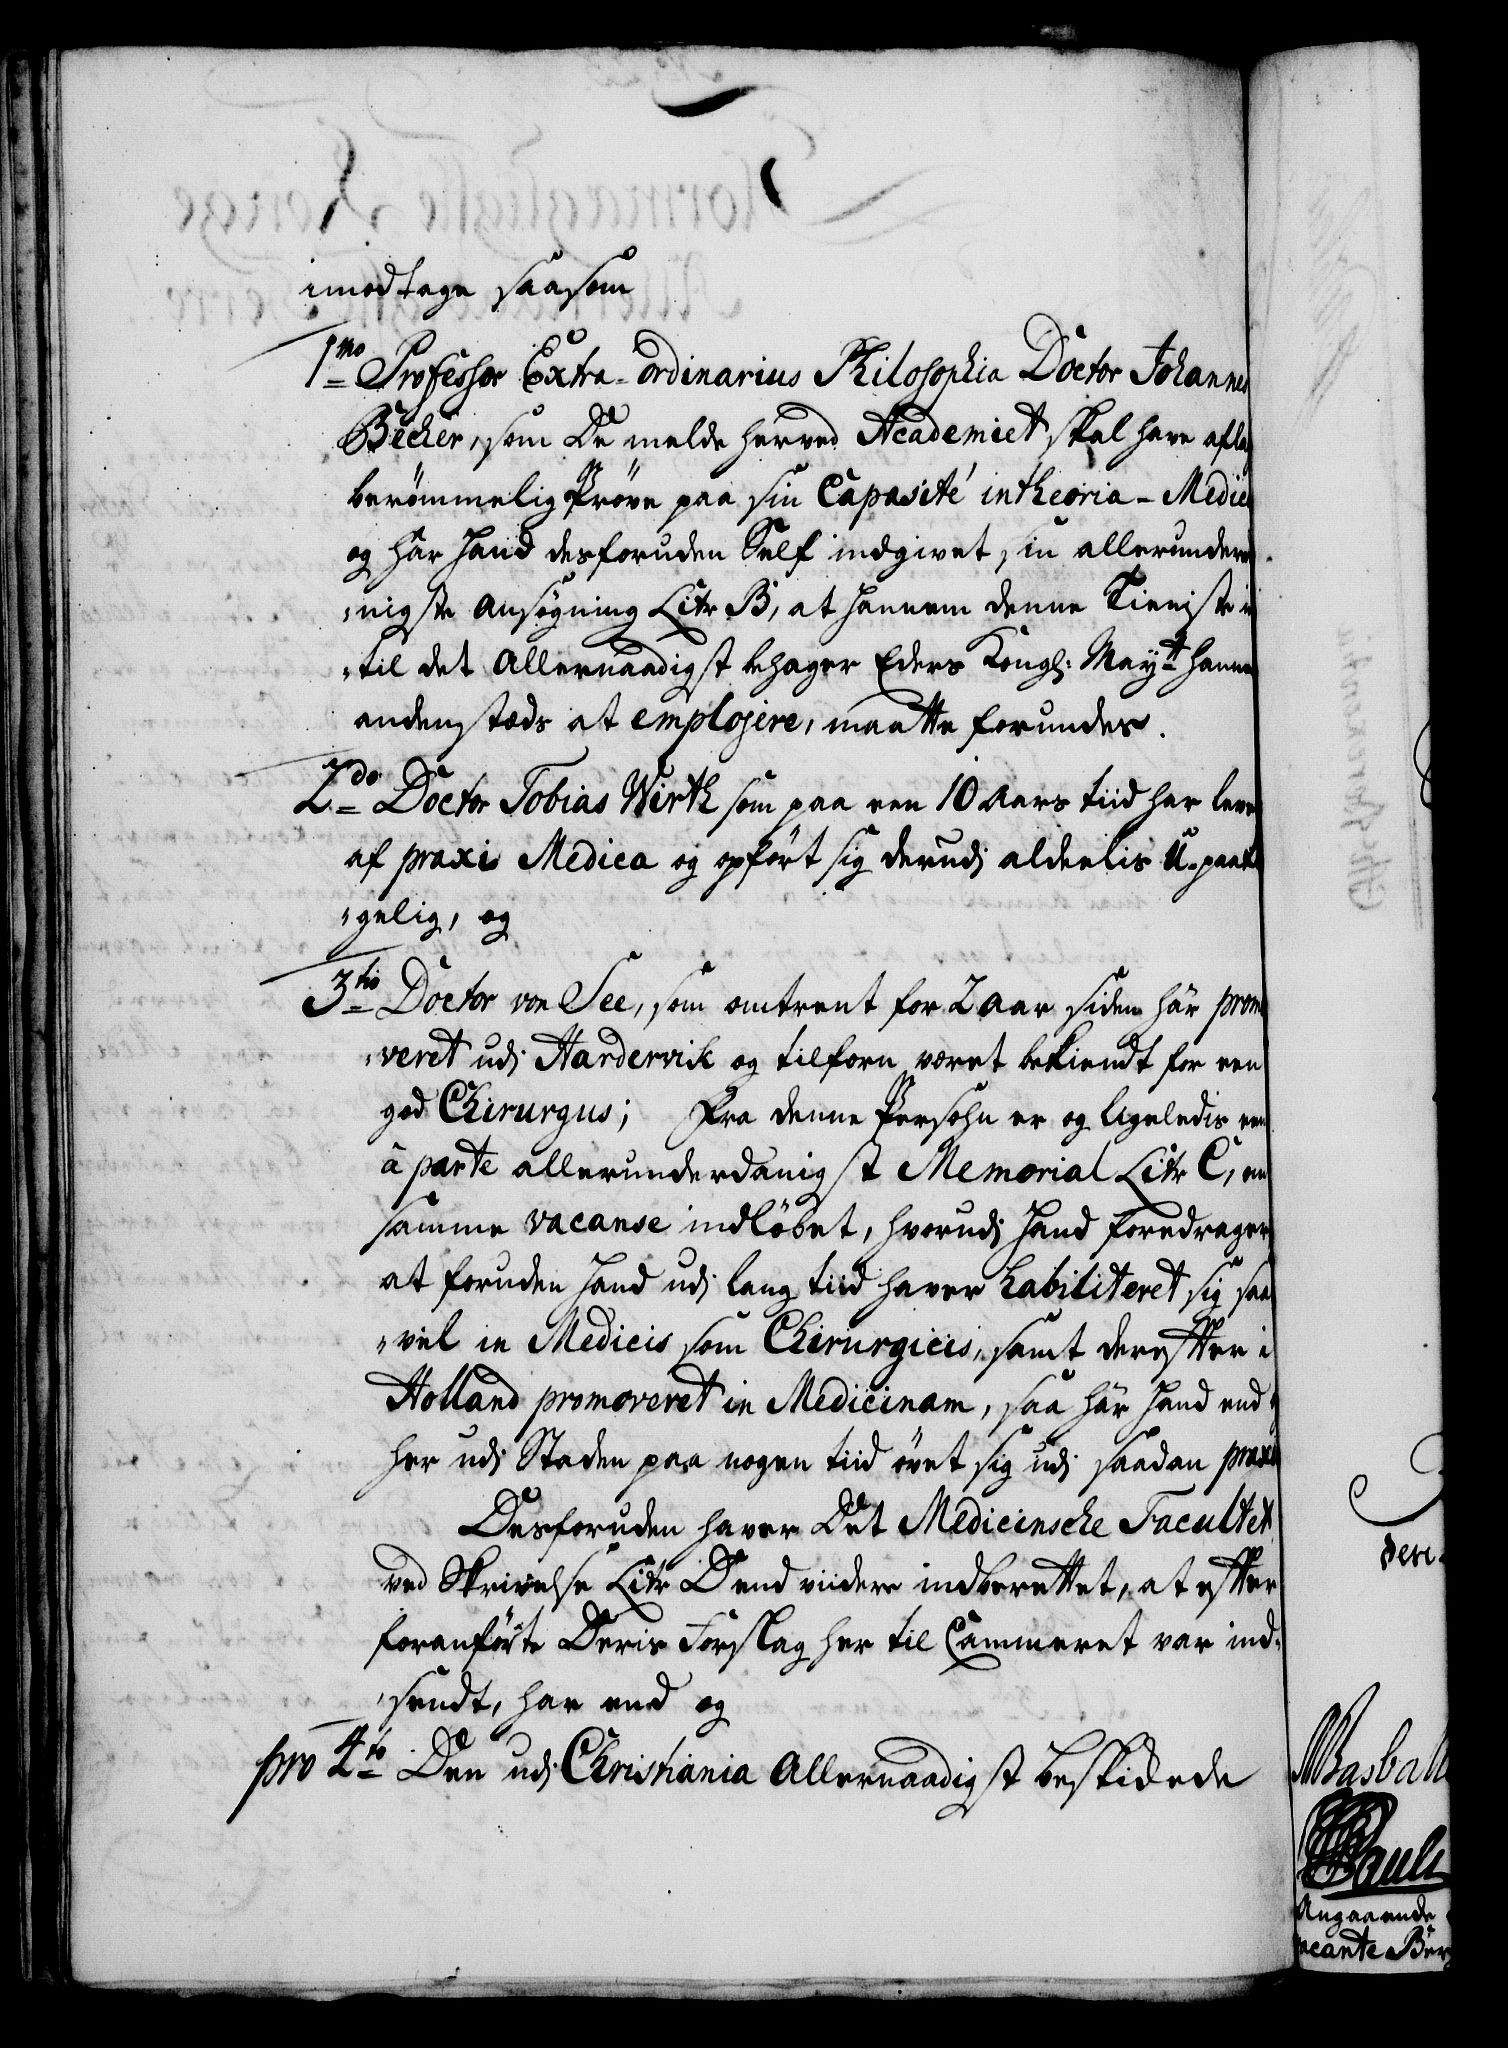 imodtage saasom
1mo Professor Extra-ordinarius Philosophia Doctor Johannes
Becher, som De melde herved Academiet skal have afla
berömmelig Pröve paa sin Capasité in theoria-Medic
og här hand desforuden Self indgivet sin allerunder
„nigste Ansøgning Litr B, at hannem denne Tieniste i
„til det Allernaadigst behager Eders Kongl: Maytt hann
andenstæds at emplojere, maatte forundes.
2do Doctor Tobias Wirth som paa een 10 Aars tiid har leve
af praxi Medica og opfört sig derudj aldeelis U-paat
„gelig, og
3tio Doctor von See, som omtrent for 2 Aar siden här promo
„veret udj Hardervik og tilforn været bekiendt for een
god Chirurgus; Fra denne Persohn er og ligeledis een
à parte allerunderdanigst Memorial Litr C, om
samme vacanse indlöbet, hvorudj hand foredrager
at foruden hand udj lang tiid haver habiliteret sig saa
„vel in Medicis som Chirurgicis, samt derefter i
Holland promoveret in Medicinam, saa här hand end og
her udj Staden paa nogen tiid övet sig udj saadan praxi
Desforuden haver Det Medicinsche Facultet
ved Skrivelse Litr D end viidere indberettet, at efter
foranförte Deris Forslag her til Cammeret var ind-
„sendt, har end og
pro 4to Den udj Christiania Allernaadigst beskikede
dere
Basball
Pauli
Angaaende
vacante Ber